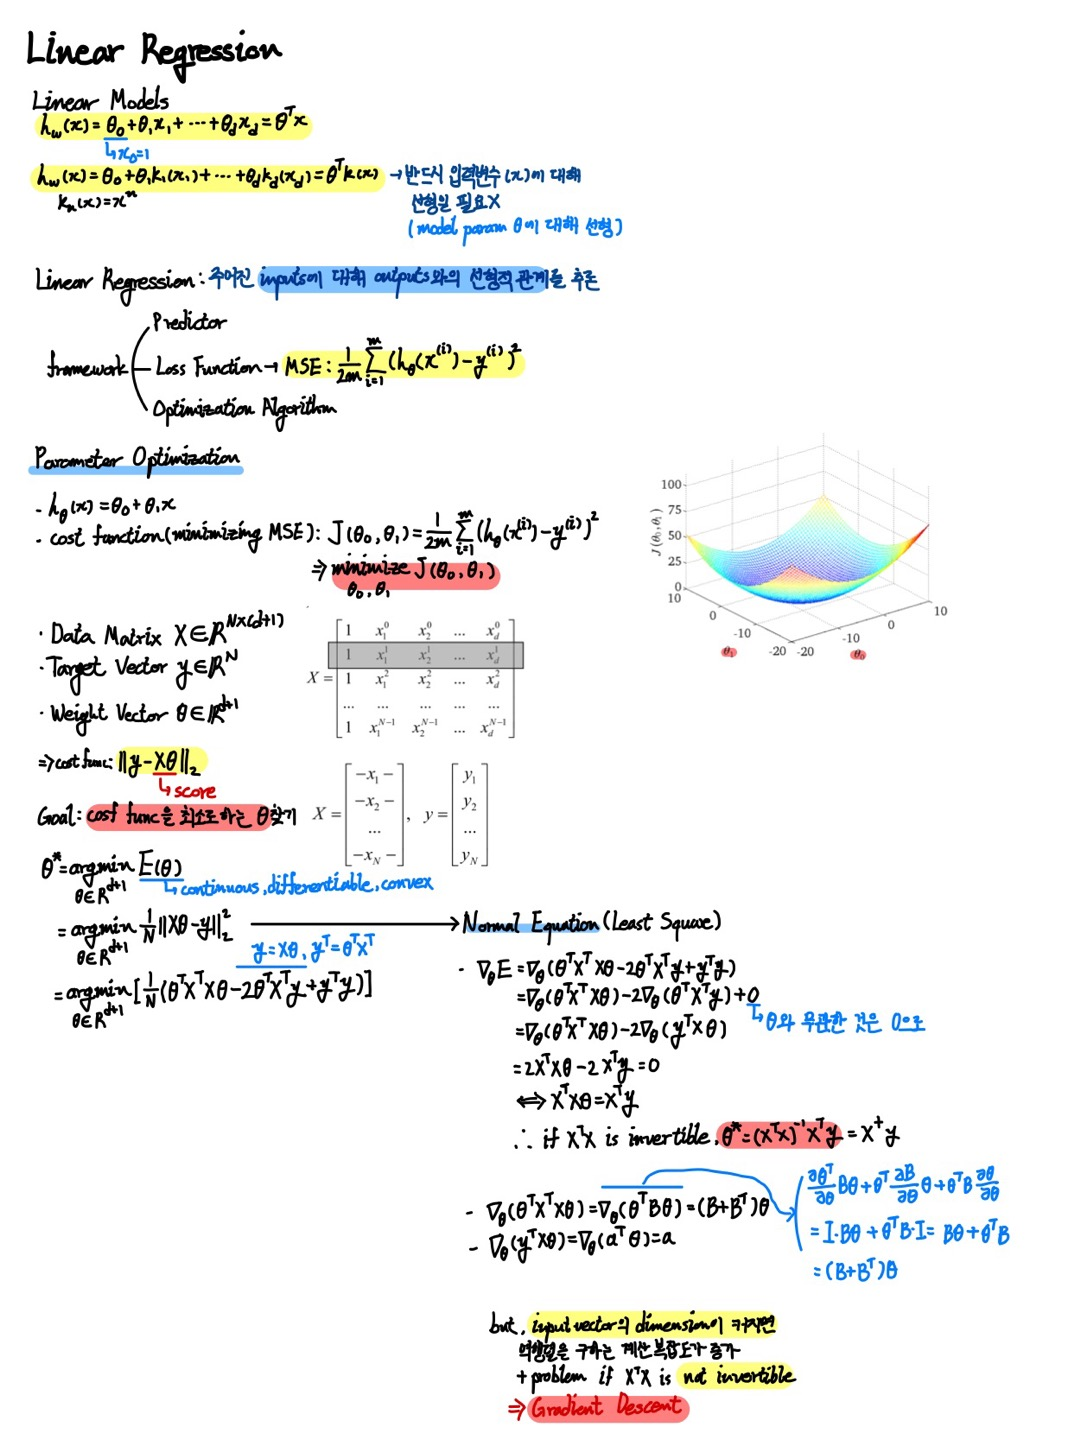 Linear Regression
Linear Models
h_w(x) = θ₀+θ₁x₁+ ··· +θ_d x_d = θᵀx
↳ x₀=1
h_w(x) = θ₀+θ₁k₁(x₁)+ ··· +θ_d k_d(x_d) = θᵀk(x) → 반드시 입력변수(x)에 대해
k_n(x) = xⁿ
선형일 필요 X
(model param θ에 대해 선형)
Linear Regression : 주어진 inputs에 대해 outputs와의 선형적 관계를 추론
framework
Predictor
Loss Function → MSE : 1/2m Σ_{i=1}^{m} (h_θ(x^(i)) − y^(i))²
Optimization Algorithm
Parameter Optimization
- h_θ(x) = θ₀+θ₁x
- cost function(minimizing MSE) : J(θ₀,θ₁) = 1/2m Σ_{i=1}^{m} (h_θ(x^(i)) − y^(i))²
⇒ minimize J(θ₀,θ₁)
θ₀,θ₁
100
75
50
25
0
J(θ₀, θ₁)
10
0
-10
-20
-20
-10
0
10
θ₁
θ₀
· Data Matrix X∈ℝ^{N×(d+1)}
· Target Vector y∈ℝ^N
· Weight Vector θ∈ℝ^{d+1}
X =
1 x₁⁰ x₂⁰ ... x_d⁰
1 x₁¹ x₂¹ ... x_d¹
1 x₁² x₂² ... x_d²
... ... ... ... ...
1 x₁^{N−1} x₂^{N−1} ... x_d^{N−1}
⇒ cost func: ‖y−Xθ‖₂
↳ score
Goal : cost func을 최소로 하는 θ찾기
X = [−x₁− −x₂− ... −x_N−], y = [y₁ y₂ ... y_N]
θ* = argmin_{θ∈R^{d+1}} E(θ)
↳ continuous, differentiable, convex
= argmin_{θ∈R^{d+1}} 1/N ‖Xθ−y‖₂² → Normal Equation (Least Square)
y=Xθ, yᵀ=θᵀXᵀ
= argmin_{θ∈R^{d+1}} [1/N (θᵀXᵀXθ−2θᵀXᵀy+yᵀy)]
· ∇_θE = ∇_θ(θᵀXᵀXθ−2θᵀXᵀy+yᵀy)
= ∇_θ(θᵀXᵀXθ)−2∇_θ(θᵀXᵀy)+0
↳ θ와 무관한 것은 0으로
= ∇_θ(θᵀXᵀXθ)−2∇_θ(yᵀXθ)
= 2XᵀXθ−2Xᵀy = 0
⟺ XᵀXθ = Xᵀy
∴ if XᵀX is invertible, θ* = (XᵀX)⁻¹Xᵀy = X⁺y
- ∇_θ(θᵀXᵀXθ) = ∇_θ(θᵀBθ) = (B+Bᵀ)θ
- ∇_θ(yᵀXθ) = ∇_θ(aᵀθ) = a
∂θᵀ/∂θ Bθ + θᵀ ∂B/∂θ θ + θᵀB ∂θ/∂θ
= I·Bθ + θᵀB·I = Bθ + θᵀB
= (B+Bᵀ)θ
but, input vector의 dimension이 커지면
역행렬을 구하는 계산 복잡도가 증가
+ problem if XᵀX is not invertible
⇒ Gradient Descent